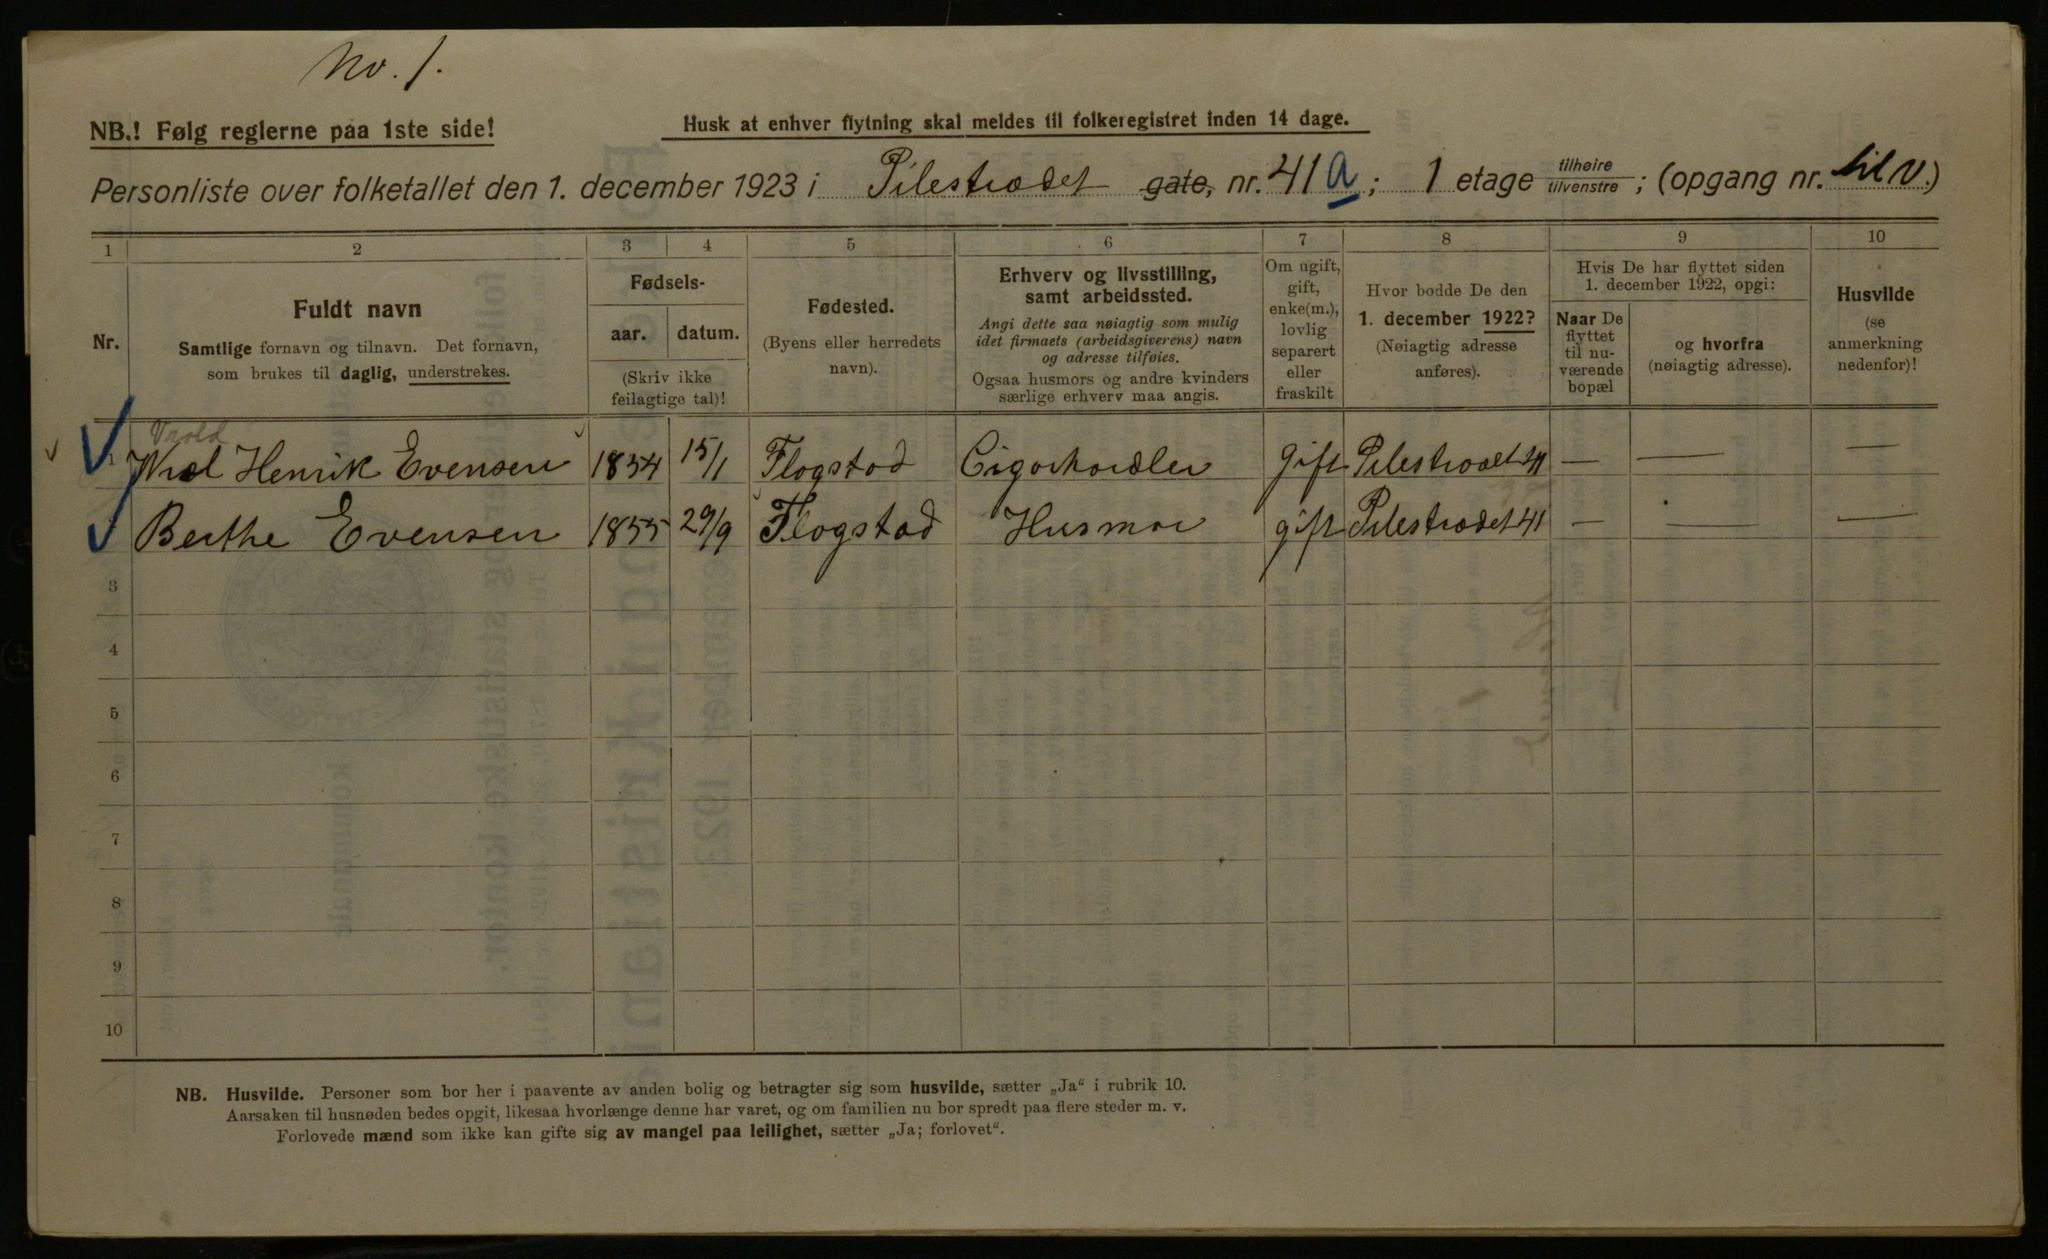 No. 1.
NB.! Følg reglerne paa 1ste side!
Husk at enhver flytning skal meldes til folkeregistret inden 14 dage.
Personliste over folketallet den 1. december 1923 i Pilestrædet gate, nr. 41 a; 1 etage tilhøire tilvenstre; (opgang nr. til v.)
1 2 3 4 5 6 7 8 9 10
Nr.
Fuldt navn
Samtlige fornavn og tilnavn. Det fornavn,
som brukes til daglig, understrekes.
Fødsels-
aar. datum.
(Skriv ikke
feilagtige tal)!
Fødested.
(Byens eller herredets
navn).
Erhverv og livsstilling,
samt arbeidssted.
Angi dette saa nøiagtig som mulig
idet firmaets (arbeidsgiverens) navn
og adresse tilføies.
Ogsaa husmors og andre kvinders
særlige erhverv maa angis.
Om ugift,
gift,
enke(m.),
lovlig
separert
eller
fraskilt
Hvor bodde De den
1. december 1922?
(Nøiagtig adresse
anføres).
Hvis De har flyttet siden
1. december 1922, opgi:
Naar De
flyttet
til nu-
værende
bopæl
og hvorfra
(nøiagtig adresse).
Husvilde
(se
anmerkning
nedenfor)!
1 Henrik Evensen 1854 15/1 Flogstad Cigarhandler gift Pilestrædet 41 — — —
Berthe Evensen 1855 29/9 Flogstad Husmor gift Pilestrædet 41 — — —
3
4
5
6
7
8
9
10
NB. Husvilde. Personer som bor her i paavente av anden bolig og betragter sig som husvilde, sætter „Ja“ i rubrik 10.
Aarsaken til husnøden bedes opgit, likesaa hvorlænge denne har varet, og om familien nu bor spredt paa flere steder m. v.
Forlovede mænd som ikke kan gifte sig av mangel paa leilighet, sætter „Ja; forlovet“.